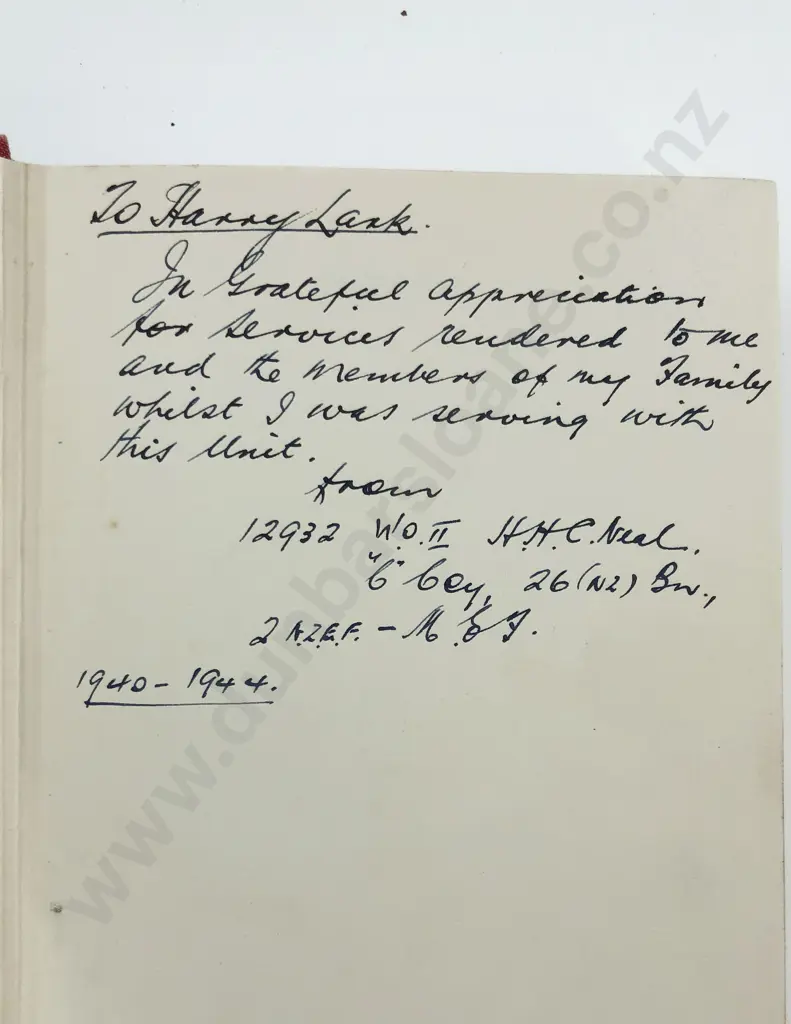 To Harry Lark.
In Grateful Appreciation
for services rendered to me
and the Members of my Family
whilst I was serving with
this Unit.
from
12932 W.O. II H.H.C. Neal.
"C" Coy, 26 (NZ) Bn.,
2 N.Z.E.F. - M.E.F.
1940 - 1944.
www.dunbarsloane.co.nz